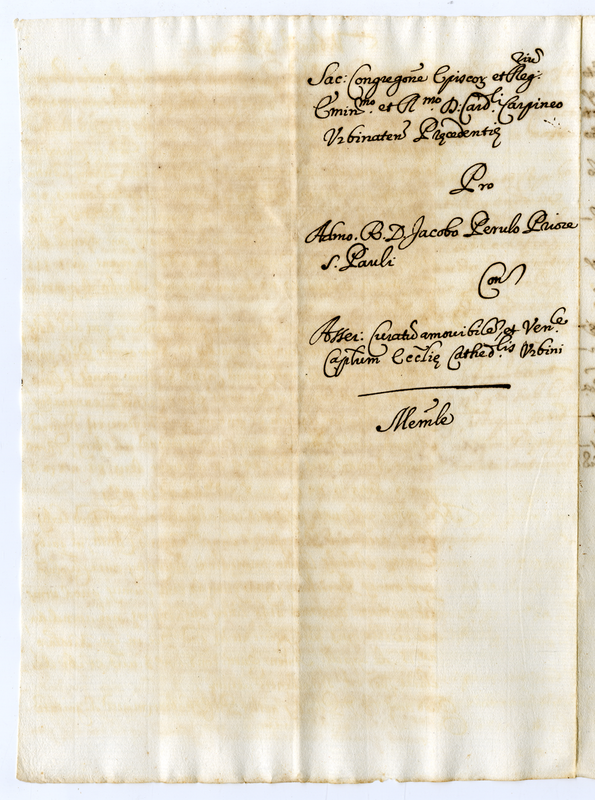 Sac: Congregõne Episcoꝝ et Reg:
Emin.mo et R.mo D. Card.li Carpineo
Urbinaten Pręcedentię
Pro
Adm̃o. R. D. Jacobo Perulo Priore
S. Pauli
Con
Asser: Curatũ amovibilẽ et Ven.le
Cap̃lum Eccl̃ię Cathed.lis Urbini
Mem̃le